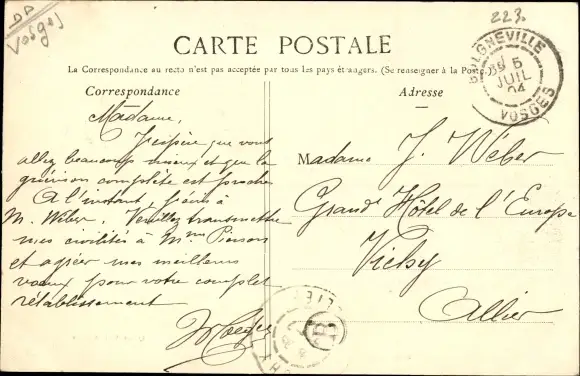 DP
Vosges
223.
CARTE POSTALE
La Correspondance au recto n'est pas acceptée par tous les pays étrangers. (Se renseigner à la Poste.)
BULGNÉVILLE
5
JUIL
04
VOSGES
Correspondance
Madame,
J'espère que vous
allez beaucoup mieux et que la
guérison complète est proche
A l'instant j'écris à
M. Wéber. Veuillez transmettre
mes civilités à Mme Pierson
et agréer mes meilleurs
vœux pour votre complet
rétablissement
Adresse
Madame J. Wéber
Grand Hôtel de l'Europe
Vichy
Allier